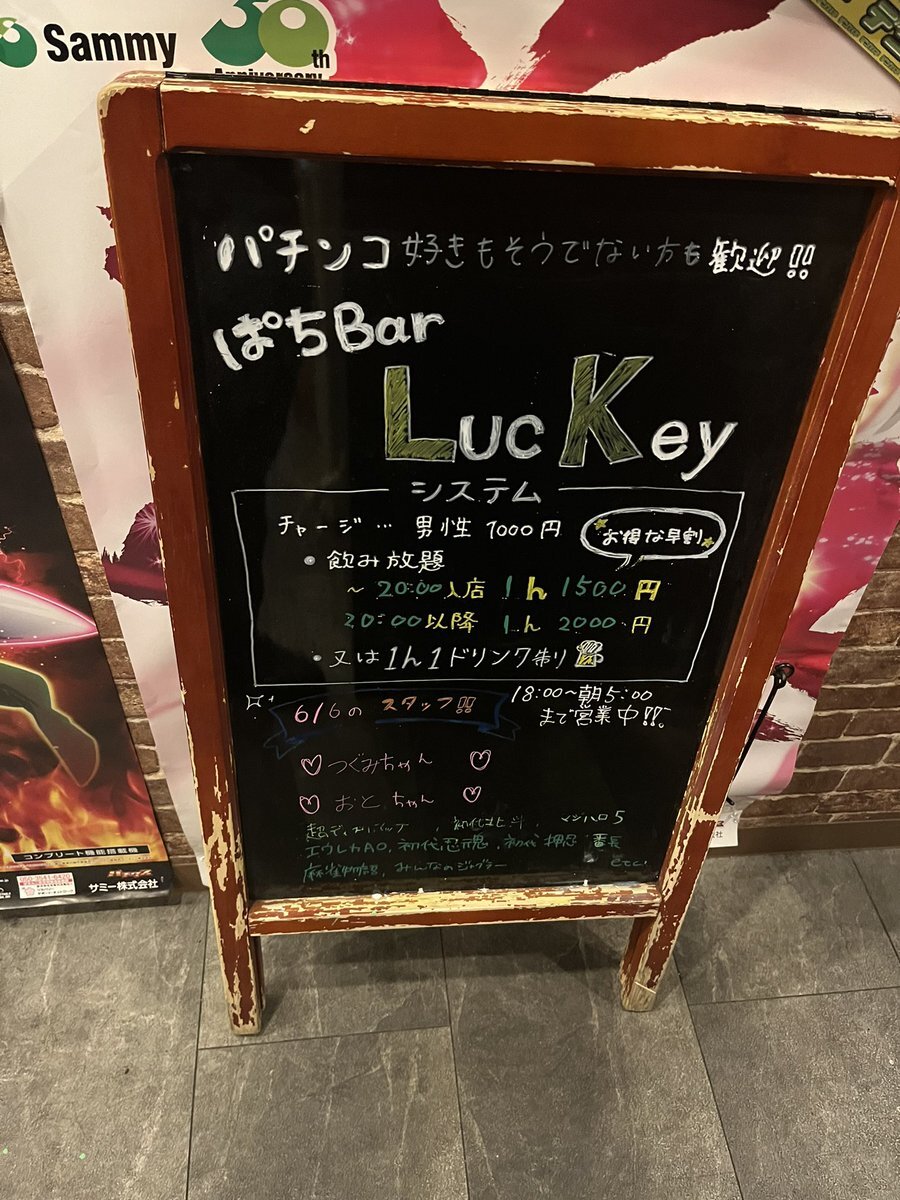 Sammy
30th
Anniversary
パチンコ好きもそうでない方も歓迎!!
ぱちBar
LucKey
システム
チャージ… 男性 1000円
お得な早割
・飲み放題
〜20:00入店 1h 1500円
20:00以降 1h 2000円
・又は1h1ドリンク制り
18:00〜朝5:00
まで営業中!!
6/6の スタッフ!!
つぐみちゃん
おとちゃん
初代北斗, マジハロ5
エウレカAO, 初代忍魂, 初代 押忍 番長
麻雀物語, みんなのジャグラー etc..
コンプリート機能搭載機
サミー株式会社